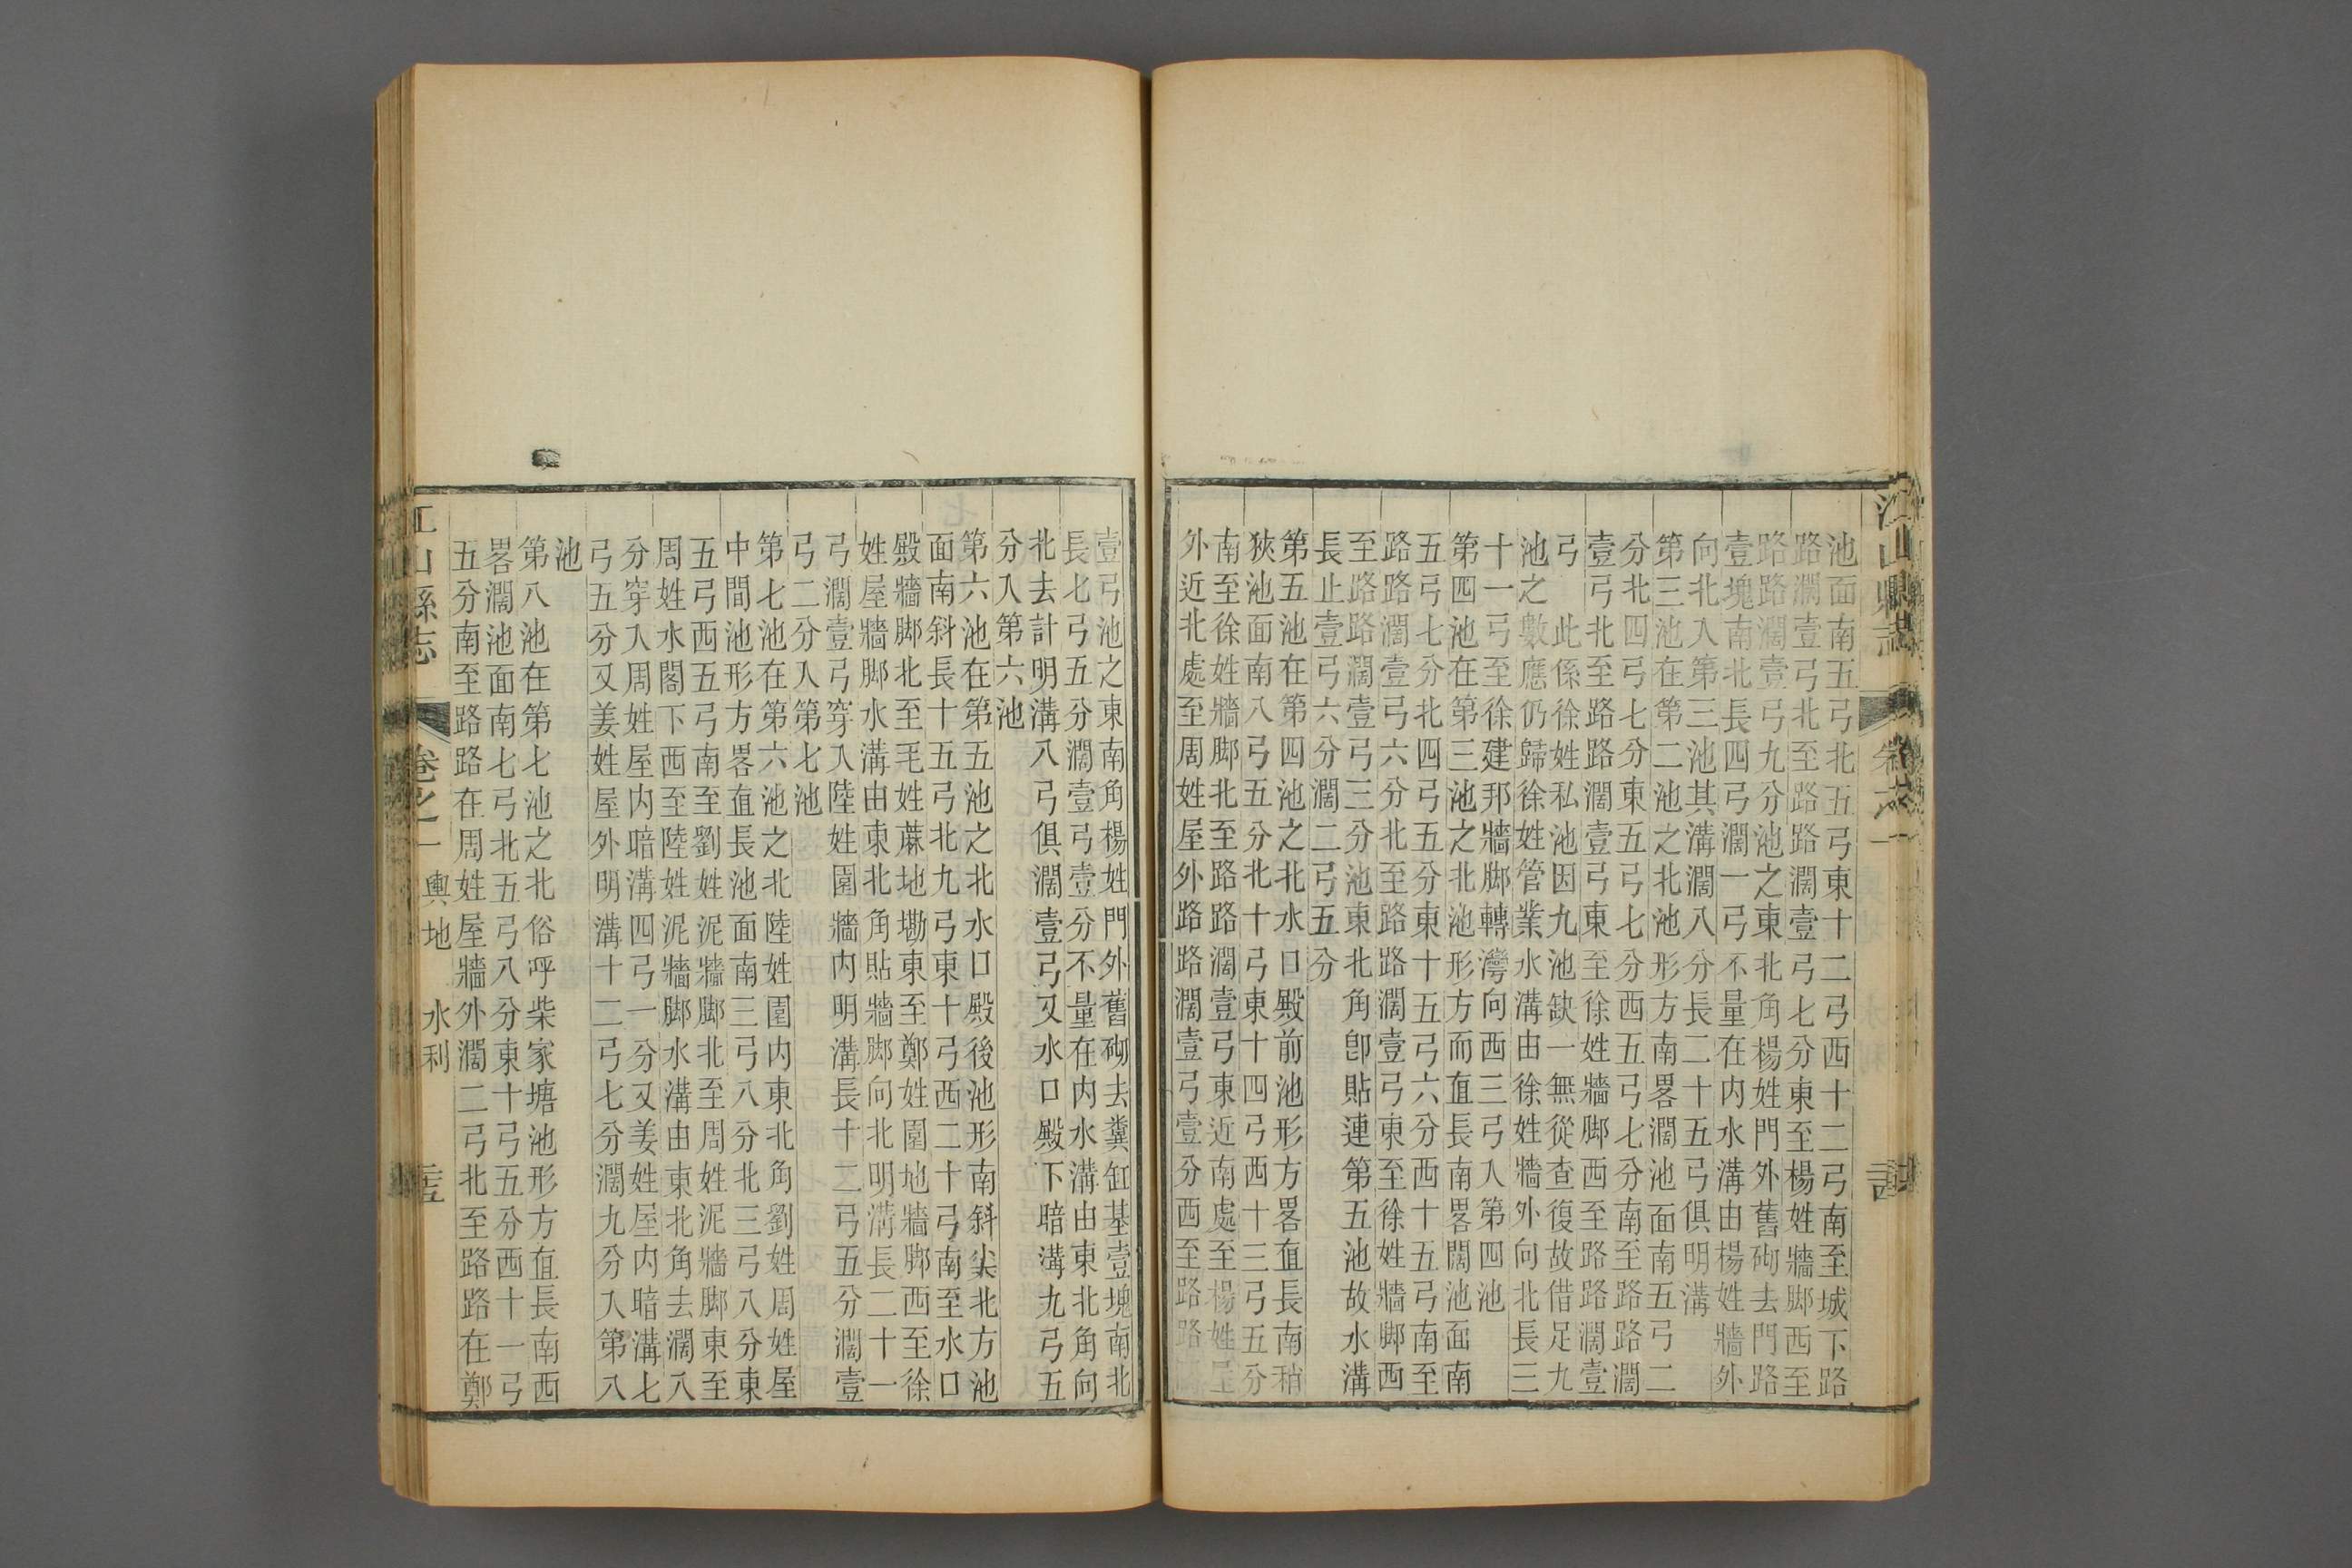 池面南五弓北五弓東十二弓西十二弓南至城下路
路濶壹弓北至路路濶壹弓七分東至楊姓牆脚西至
路路濶壹弓九分池之東北角楊姓門外舊砌去門路
壹塊南北長四弓濶一弓不量在内水溝由楊姓牆外
向北入第三池其溝濶八分長二十五弓俱明溝
第三池在第二池之北池形方南畧濶池面南五弓二
分北四弓七分東五弓七分西五弓七分南至路路濶
壹弓北至路路濶壹弓東至徐姓牆脚西至路路濶壹
弓 此係徐姓私池因九池缺一無從查復故借足九
池之數應仍歸徐姓管業水溝由徐姓牆外向北長三
十一弓至徐建邦牆脚轉灣向西三弓入第四池
第四池在第三池之北池形方而直長南畧闊池面南
五弓七分北四弓五分東十五弓六分西十五弓南至
路路濶壹弓六分北至路路濶壹弓東至徐姓牆脚西
至路路濶壹弓三分池東北角卽貼連第五池故水溝
長止壹弓六分濶二弓五分
第五池在第四池之北水口殿前池形方畧直長南稍
狹池面南八弓五分北十弓東十四弓西十三弓五分
南至徐姓牆脚北至路路濶壹弓東近南處至楊姓
外近北處至周姓屋外路路濶壹弓壹分西至路路
壹弓池之東南角楊姓門外舊砌去糞缸基壹塊南北
長七弓五分濶壹弓壹分不量在内水溝由東北角向
北去計明溝八弓俱濶壹弓又水口殿下暗溝九弓五
分入第六池
第六池在第五池之北水口殿後池形南斜尖北方池
面南斜長十五弓北九弓東十弓西二十弓南至水口
殿牆脚北至毛姓蔴地塝東至鄭姓園地牆脚西至徐
姓屋牆脚水溝由東北角貼牆脚向北明溝長二十一
弓濶壹弓穿入陸姓園牆内明溝長十二弓五分濶壹
弓二分入第七池
第七池在第六池之北陸姓園内東北角劉姓周姓屋
中間池形方畧直長池面南三弓八分北三弓八分東
五弓西五弓南至劉姓泥牆脚北至周姓泥牆脚東至
周姓水閣下西至陸姓泥牆脚水溝由東北角去濶八
分穿入周姓屋内暗溝四弓一分又姜姓屋内暗溝七
弓五分又姜姓屋外明溝十二弓七分濶九分入第八
池
第八池在第七池之北俗呼柴家塘池形方直長南西
畧濶池面南七弓北五弓八分東十弓五分西十一弓
五分南至路路在周姓屋牆外濶二弓北至路路在鄭
江山縣志 卷之一 輿地 水利